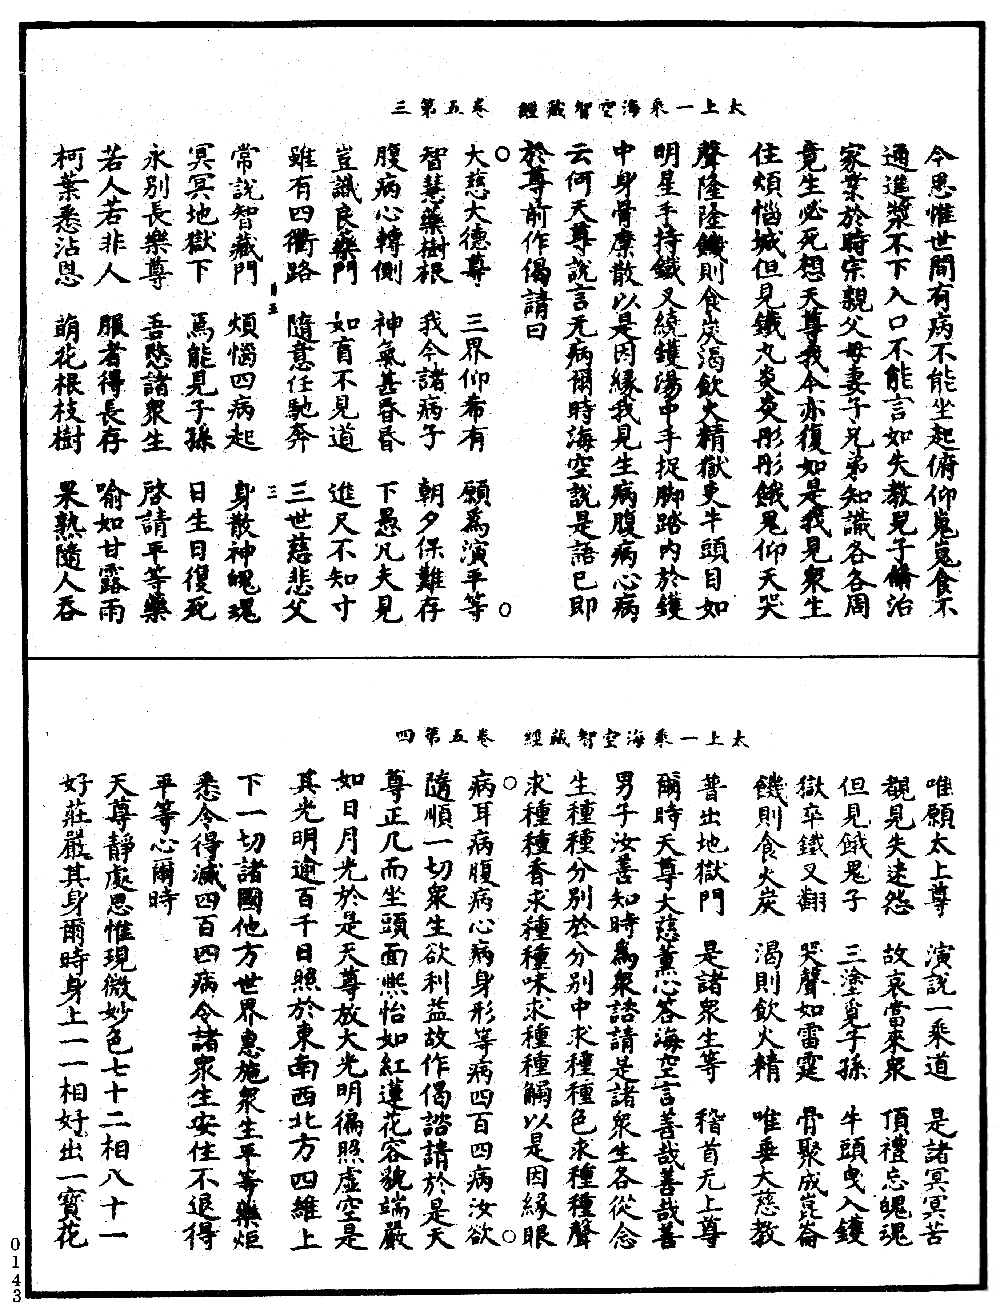 太上一乘海空智藏經　卷五第三
今思惟世間有病不能坐起俯仰嵬嵬食不
通進漿不下入口不能言如失教兒子脩治
家業於時宗親父母妻子兄弟知識各各周
竟生必死想天尊我今亦復如是我見衆生
住煩惱城但見鐵丸炎炎彤彤餓鬼仰天哭
聲隆隆饑則食炭渴飲火精獄吏牛頭目如
明星手持鐵叉繞鑊湯中手捉脚踏內於鑊
中身骨糜散以是因緣我見生病腹病心病
云何天尊說言无病爾時海空說是語已即
於尊前作偈請曰
大慈大德尊　三界仰希有　願爲演平等
智慧藥樹根　我今諸病子　朝夕保難存
腹病心轉側　神氣甚昏昏　下愚凡夫見
豈識良藥門　如盲不見道　進尺不知寸
雖有四衢路　隨意任馳奔　三世慈悲父
常說智藏門　煩惱四病起　身散神魄魂
冥冥地獄下　焉能見子孫　日生日復死
永別長樂尊　吾愍諸衆生　啓請平等藥
若人若非人　服者得長存　喻如甘露雨
柯葉悉沾恩　萌花根枝樹　果熟隨人吞
太上一乘海空智藏經　卷五第四
唯願太上尊　演說一乘道　是諸冥冥苦
覩見失迷怨　故哀當來衆　頂禮忘魄魂
但見餓鬼子　三塗覓子孫　牛頭曳入鑊
獄卒鐵叉翻　哭聲如雷霆　骨聚成崑崙
饑則食火炭　渴則飲火精　唯垂大慈教
普出地獄門　是諸衆生等　稽首无上尊
爾時天尊大慈薰心答海空言善哉善哉善
男子汝善知時爲衆諮請是諸衆生各從念
生種種分別於分別中求種種色求種種聲
求種種香求種種味求種種觸以是因緣眼
病耳病腹病心病身形等病四百四病汝欲
隨順一切衆生欲利益故作偈諮請於是天
尊正几而坐頭面熙怡如紅蓮花容貌端嚴
如日月光於是天尊放大光明徧照虛空是
其光明逾百千日照於東南西北方四維上
下一切諸國他方世界惠施衆生平等藥炬
悉令得滅四百四病令諸衆生安住不退得
平等心爾時
天尊靜處思惟現微妙色七十二相八十一
好莊嚴其身爾時身上一一相好出一寶花
0143